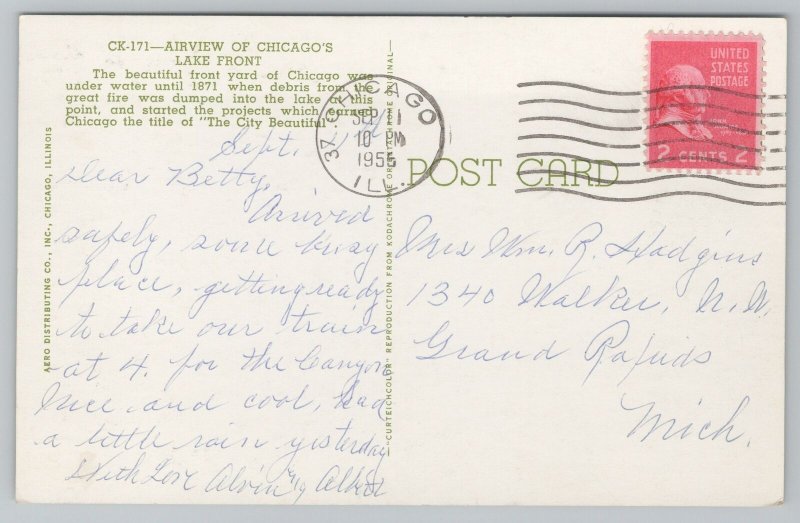 CK-171—AIRVIEW OF CHICAGO'S
LAKE FRONT
The beautiful front yard of Chicago was
under water until 1871 when debris from the
great fire was dumped into the lake at this
point, and started the projects which earned
Chicago the title of "The City Beautiful".
Sept. 1st
Dear Betty,
Arrived
safely, some busy
place, getting ready
to take our train
at 4. for the Canyon
Nice and cool, had
a little rain yesterday
With Love Alvin
AERO DISTRIBUTING CO., INC., CHICAGO, ILLINOIS
"CURTEICHCOLOR" REPRODUCTION FROM KODACHROME OR EKTACHROME ORIGINAL—
37. CHICAGO
SEP 1
10 PM
1955
ILL.
UNITED
STATES
POSTAGE
2 CENTS 2
POST CARD
Mrs Wm. R. Hodgins
1340 Walker, N.W.
Grand Rapids
Mich.